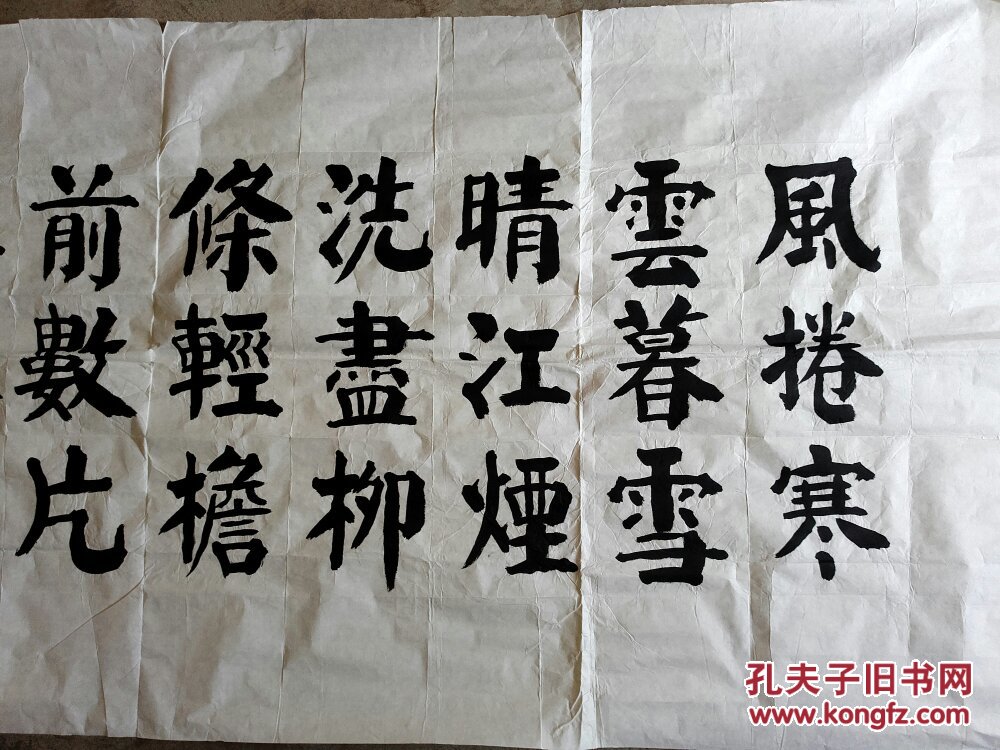 風捲寒
雲暮雪
晴江煙
洗盡柳
條輕檐
前數片
孔夫子旧书网
www.kongfz.com